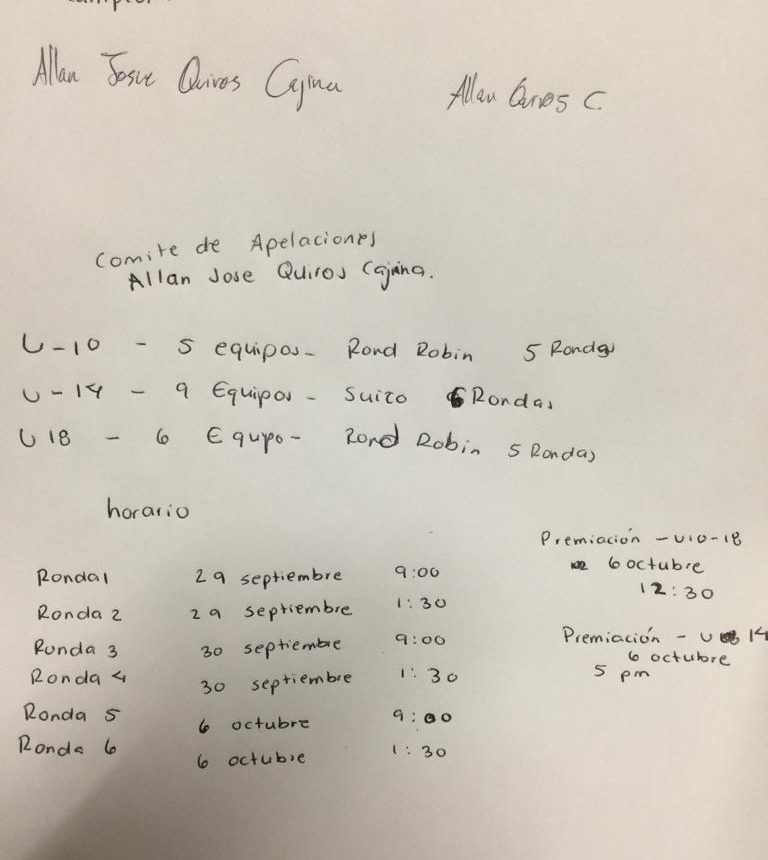 Allan Josue Quiros Cajina
Allan Quiros C.
Comite de Apelaciones
Allan Jose Quiros Cajina.
U-10 - 5 equipos - Rond Robin 5 Rondas
U-14 - 9 Equipos - Suizo 6 Rondas
U 18 - 6 Equipo - Rond Robin 5 Rondas
horario
Ronda 1 29 septiembre 9:00
Ronda 2 29 septiembre 1:30
Ronda 3 30 septiembre 9:00
Ronda 4 30 septiembre 1:30
Ronda 5 6 octubre 9:00
Ronda 6 6 octubre 1:30
Premiación - U10-18
6 octubre
12:30
Premiación - U 14
6 octubre
5 pm